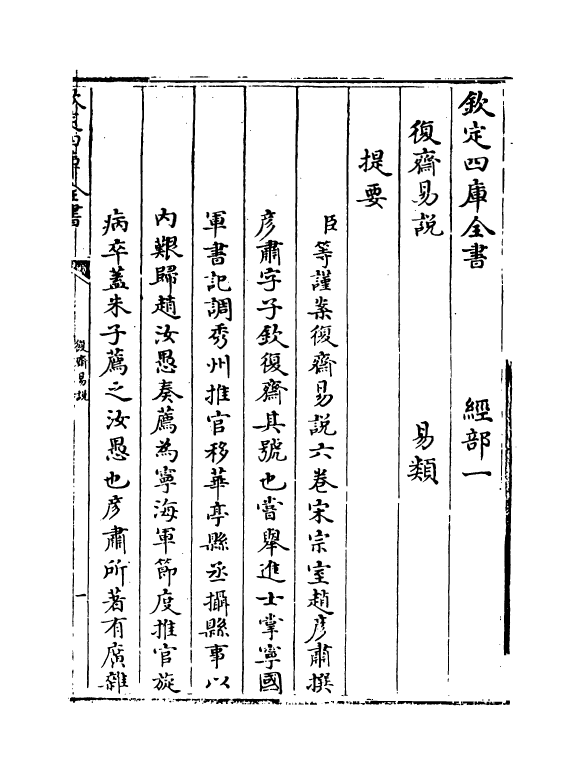 欽定四庫全書 經部一
復齋易説 易類
提要
臣等謹案復齋易説六卷宋宗室趙彦肅撰
彦肅字子欽復齋其號也嘗舉進士掌寧國
軍書記調秀州推官移華亭縣丞攝縣事以
内艱歸趙汝愚奏薦為寧海軍節度推官旋
病卒蓋朱子薦之汝愚也彦肅所著有廣雜
欽定四庫全書
復齋易説
一